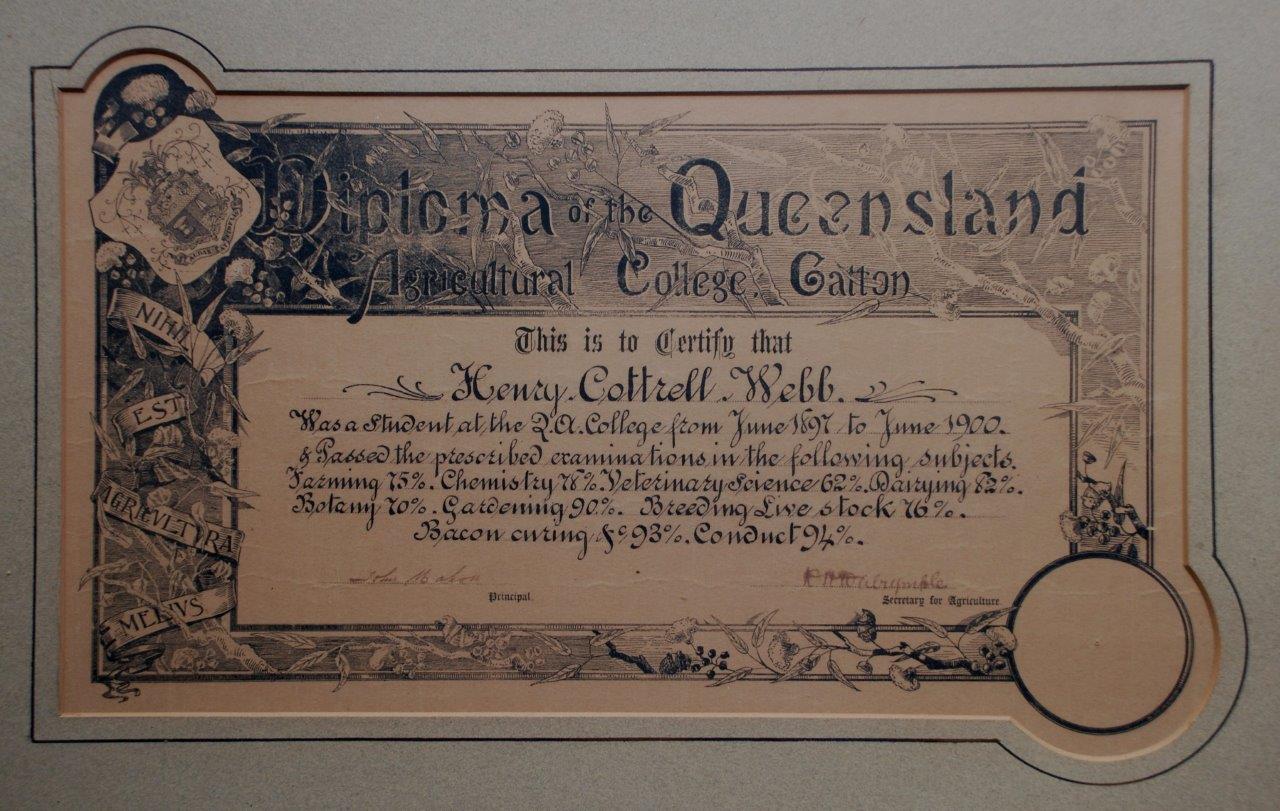 Diploma of the Queensland
Agricultural College, Gatton
NIHIL
EST
AGRICVLTVRA
MELIVS
This is to Certify that
Henry Cottrell Webb.
Was a Student at the Q.A. College from June 1897 to June 1900.
& Passed the prescribed examinations in the following subjects.
Farming 75%. Chemistry 78%. Veterinary Science 62%. Dairying 82%.
Botany 70%. Gardening 90%. Breeding Live stock 76%.
Bacon curing &c 93%. Conduct 94%.
John Mahon
Principal.
Secretary for Agriculture.